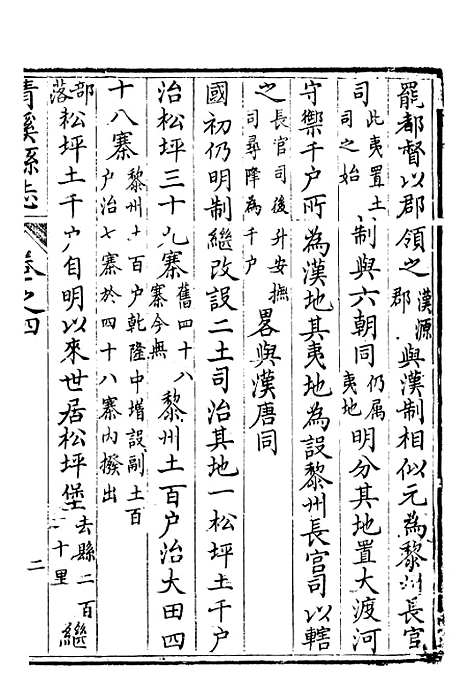 罷都督以郡領之漢源郡與漢制相似元為黎州長官
司此夷置土司之始制與六朝同仍属夷地明分其地置大渡河
守禦千户所為漢地其夷地為設黎州長官司以轄
之長官司後升安撫司尋降為千户畧與漢唐同
國初仍明制繼改設二土司治其地一松坪土千户
治松坪三十九寨舊四十八寨今無黎州土百户治大田四
十八寨黎州土百户乾隆中增設副土百户治七寨於四十八寨内撥出
部落松坪土千户自明以來世居松坪堡去縣二百一十里繼
清溪縣志 卷之四 二